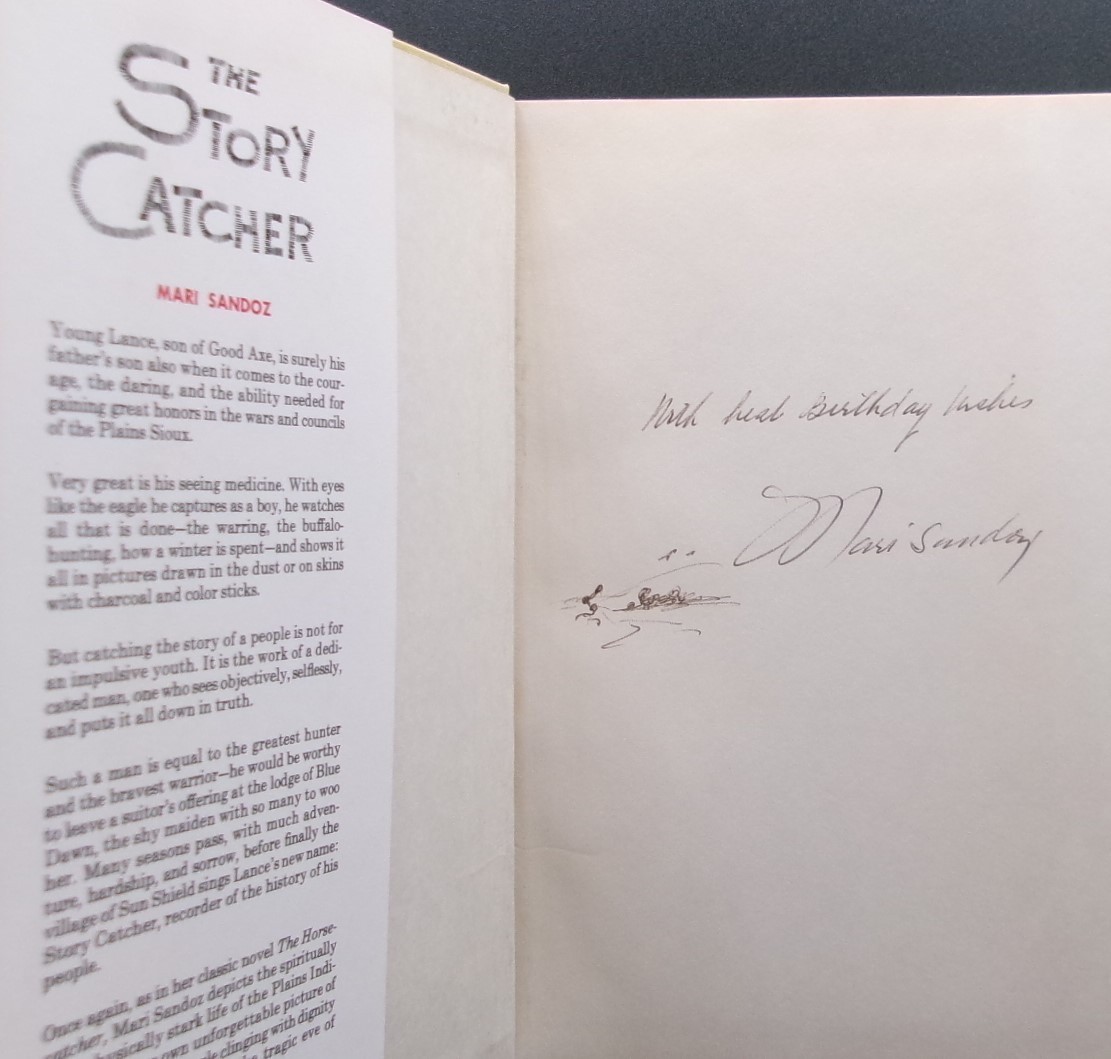 THE
STORY
CATCHER
MARI SANDOZ
Young Lance, son of Good Axe, is surely his
father's son also when it comes to the cour-
age, the daring, and the ability needed for
gaining great honors in the wars and councils
of the Plains Sioux.
Very great is his seeing medicine. With eyes
like the eagle he captures as a boy, he watches
all that is done—the warring, the buffalo-
hunting, how a winter is spent—and shows it
all in pictures drawn in the dust or on skins
with charcoal and color sticks.
But catching the story of a people is not for
an impulsive youth. It is the work of a dedi-
cated man, one who sees objectively, selflessly,
and puts it all down in truth.
Such a man is equal to the greatest hunter
and the bravest warrior—he would be worthy
to leave a suitor's offering at the lodge of Blue
Dawn, the shy maiden with so many to woo
her. Many seasons pass, with much adven-
ture, hardship, and sorrow, before finally the
village of Sun Shield sings Lance's new name:
Story Catcher, recorder of the history of his
people.
Once again, as in her classic novel The Horse-
catcher, Mari Sandoz depicts the spiritually
physically stark life of the Plains Indi-
own unforgettable picture of
clinging with dignity
tragic eve of
With best Birthday Wishes
Mari Sandoz